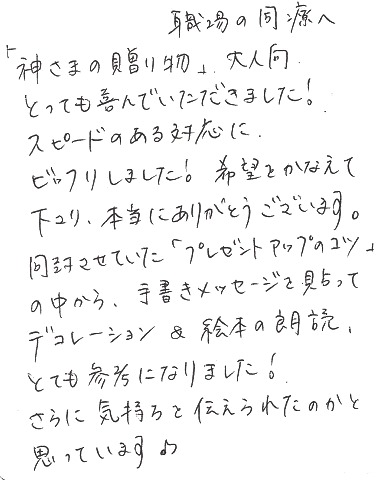 職場の同療へ
「神さまの贈り物」、大人向
とっても喜んでいただきました！
スピードのある対応に
ビックリしました！希望をかなえて
下さり、本当にありがとうございます。
同封させていた「プレゼントアップのコツ」
の中から、手書きメッセージを貼って
デコレーション & 絵本の朗読、
とても参考になりました！
さらに気持ちを伝えられたのかと
思っています♪